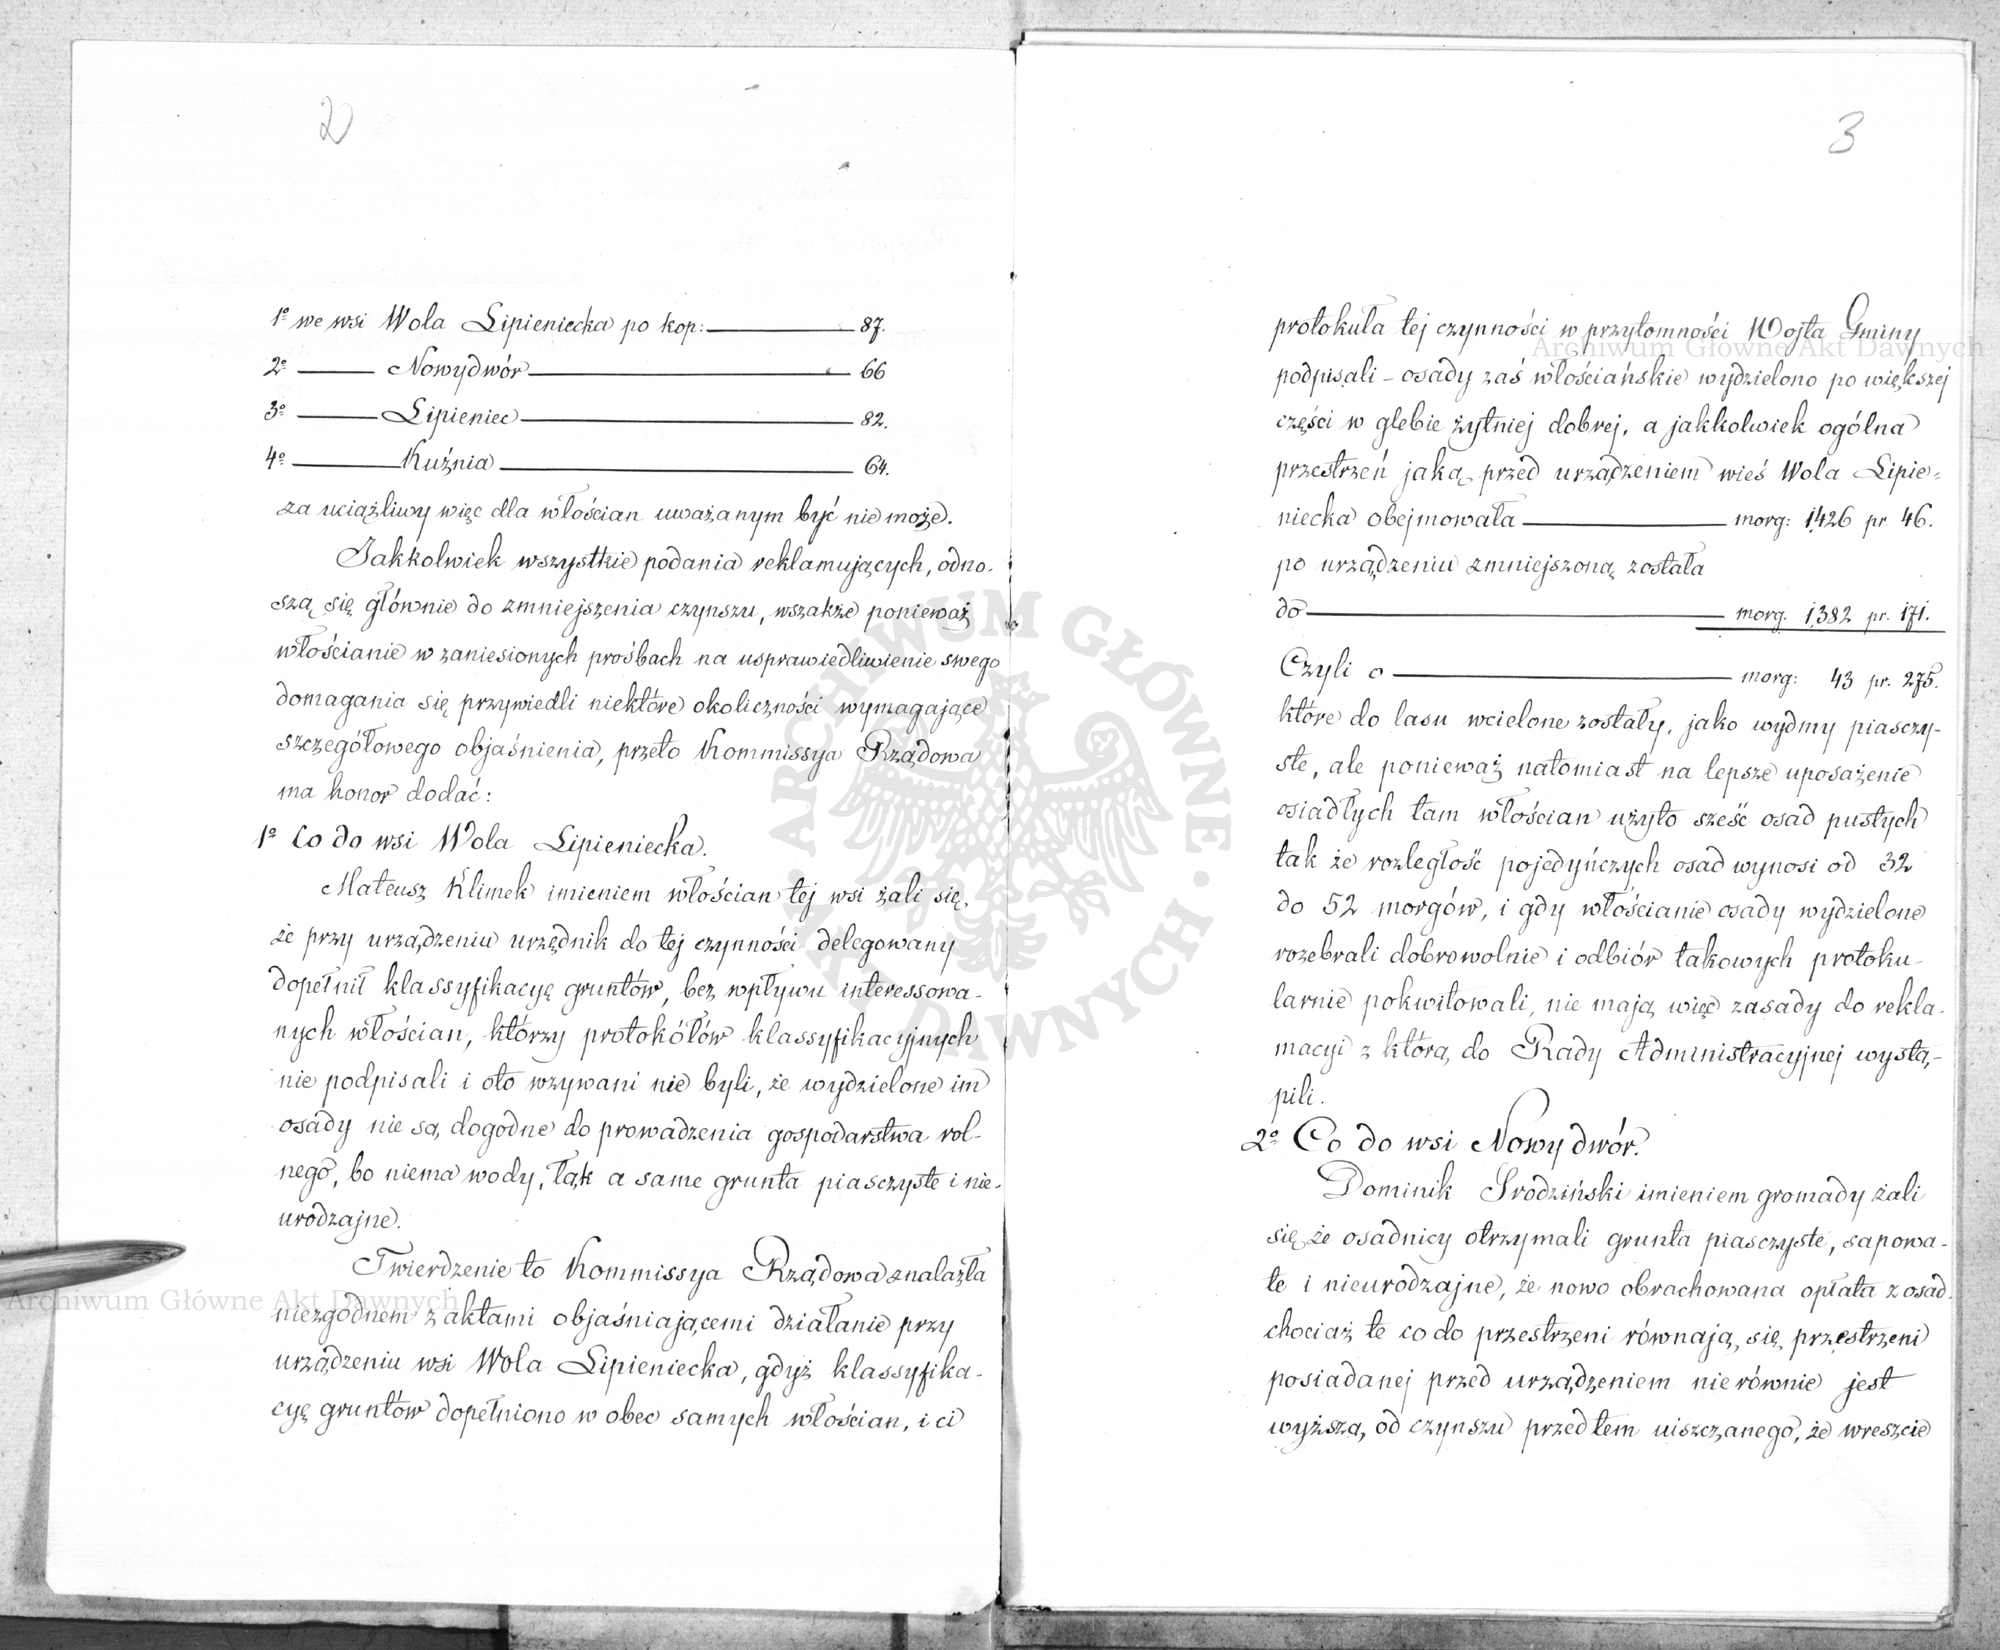 2
1º we wsi Wola Lipieniecka po kop: 87.
2º Nowydwór 66
3º Lipieniec 82.
4º Kuźnia 64.
za uciążliwy więc dla włościan uważanym być nie może.
Jakkolwiek wszystkie podania reklamujących, odno-
szą się głównie do zmniejszenia czynszu, wszakże ponieważ
włościanie w zaniesionych prośbach na usprawiedliwienie swego
domagania się przywiedli niektóre okoliczności wymagające
szczegółowego objaśnienia, przeto Kommissya Rządowa
ma honor dodać:
1º Co do wsi Wola Lipieniecka.
Mateusz Klimek imieniem włościan tej wsi żali się,
że przy urządzeniu urzędnik do tej czynności delegowany
dopełnił klassyfikacyę gruntów, bez wpływu interessowa-
nych włościan, którzy protokółów klassyfikacyjnych
nie podpisali i oto wzywani nie byli, że wydzielone im
osady nie są dogodne do prowadzenia gospodarstwa rol-
nego, bo niema wody, łąk a same grunta piasczyste i nie-
urodzajne.
Twierdzenie to Kommissya Rządowa znalazła
niezgodnem z aktami objaśniającemi działanie przy
urządzeniu wsi Wola Lipieniecka, gdyż klassyfika-
cyę gruntów dopełniono w obec samych włościan, i ci
3
protokuła tej czynności w przytomności Wojta Gminy
podpisali - osady zaś włościańskie wydzielono po większej
części w glebie żytniej dobrej, a jakkolwiek ogólna
przestrzeń jaką przed urządzeniem wieś Wola Lipie=
niecka obejmowała morg: 1,426 pr 46.
po urządzeniu zmniejszoną została
do morg. 1,382 pr. 171.
Czyli o morg: 43 pr. 275.
które do lasu wcielone zostały, jako wydmy piasczy-
ste, ale ponieważ natomiast na lepsze uposażenie
osiadłych tam włościan użyto sześć osad pustych
tak że rozległość pojedyńczych osad wynosi od 32
do 52 morgów, i gdy włościanie osady wydzielone
rozebrali dobrowolnie i odbiór takowych protoku-
larnie pokwitowali, nie mają więc zasady do rekla-
macyi z którą do Rady Administracyjnej wystą-
pili.
2º Co do wsi Nowydwór.
Dominik Srodziński imieniem gromady żali
się że osadnicy otrzymali grunta piasczyste, sapowa-
te i nieurodzajne, że nowo obrachowana opłata z osad
chociaż te co do przestrzeni równają się przestrzeni
posiadanej przed urządzeniem nierównie jest
wyższą od czynszu przedtem uiszczanego, że wreszcie
Archiwum Główne Akt Dawnych
Archiwum Główne Akt Dawnych
ARCHIWUM GŁÓWNE AKT DAWNYCH